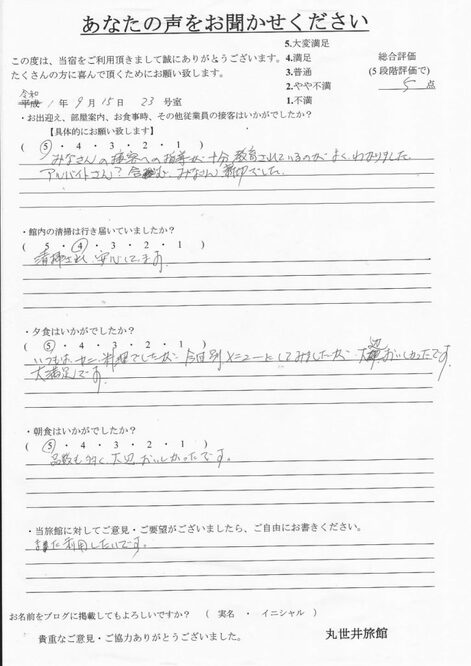 あなたの声をお聞かせください
この度は、当宿をご利用頂きまして誠にありがとうございます。
たくさんの方に喜んで頂くためにお願い致します。
5.大変満足
4.満足
3.普通
2.やや不満
1.不満
総合評価
(5段階評価で)
5 点
令和
平成 1年 9月 15日 23 号室
・お出迎え、部屋案内、お食事時、その他従業員の接客はいかがでしたか?
【具体的にお願い致します】
( 5 ・ 4 ・ 3 ・ 2 ・ 1 )
みなさんの接客への指導が十分教育されているのがよくわかりました
アルバイトさん?含め、みなさん親切でした。
・館内の清掃は行き届いていましたか?
( 5 ・ 4 ・ 3 ・ 2 ・ 1 )
清掃され、安心してます。
・夕食はいかがでしたか?
( 5 ・ 4 ・ 3 ・ 2 ・ 1 )
いつもは 料理でしたが 今回別メニューにしてみましたが 大変おいしかったです
大満足です。
・朝食はいかがでしたか?
( 5 ・ 4 ・ 3 ・ 2 ・ 1 )
品数も多く、大辺おいしかったです。
・当旅館に対してご意見・ご要望がございましたら、ご自由にお書きください。
また利用したいです。
お名前をブログに掲載してもよろしいですか? ( 実名 ・ イニシャル )
貴重なご意見・ご協力ありがとうございました。
丸世井旅館